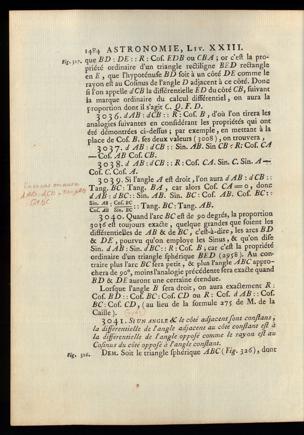 1484 ASTRONOMIE, LIV. XXIII.
Fig. 327. que BD : DE : : R : Cos. EDB ou CBA ; or c'est la pro-
priété ordinaire d'un triangle rectiligne BED rectangle
en E, que l'hypoténuse BD soit à un côté DE comme le
rayon est au Cosinus de l'angle D adjacent à ce côté. Donc
si l'on appelle dCB la différentielle ED du côté CB, suivant
la marque ordinaire du calcul différentiel, on aura la
proportion dont il s'agit C. Q. F. D.
3036. dAB : dCB : : R : Cos. B, d'où l'on tirera les
analogies suivantes en considérant les propriétés qui ont
été démontrées ci-dessus ; par exemple, en mettant à la
place de Cos. B. ses deux valeurs (3008), on trouvera,
3037. dAB : dCB : : Sin. AB. Sin CB : R : Cos. CA
— Cos. AB Cos. CB.
3038. dAB : dCB : : R : Cos. CA. Sin. C. Sin. A —
Cos. C. Cos. A.
3039. Si l'angle A est droit, l'on aura dAB : dCB : :
Tang. BC : Tang. BA, car alors Cos. CA = 0, donc
dAB : dCB : : Sin. AB. Sin. BC : Cos. AB. Cos. BC : :
Sin. AB : Cos. BC
Cos. AB Sin. BC : : Tang. BC : Tang. AB.
3040. Quand l'arc BC est de 90 degrés, la proportion
3036 est toujours exacte, quelque grandes que soient les
différentielles de AB & de BC, c'est-à-dire, les arcs BD
& DE, pourvu qu'on emploie les Sinus, & qu'on dise
Sin. dAB : Sin. dBC : : R : Cos. B, car c'est la propriété
ordinaire d'un triangle sphérique BED (2958). Au con-
traire plus l'arc BC sera petit, & plus l'angle ABC appro-
chera de 90°, moins l'analogie précédente sera exacte quand
BD & DE auront une certaine étendue.
Lorsque l'angle B sera droit, on aura exactement R :
Cos. BD : : Cos. BC : Cos. CD ou R : Cos. dAB : : Cos.
BC : Cos. CD, (au lieu de la formule 275 de M. de la
Caille).
3041. SI UN ANGLE & le côté adjacent sont constans,
la différentielle de l'angle adjacent au côté constant est à
la différentielle de l'angle opposé comme le rayon est au
Cosinus du côté opposé à l'angle constant.
Fig. 326. DEM. Soit le triangle sphérique ABC (Fig. 326), dont